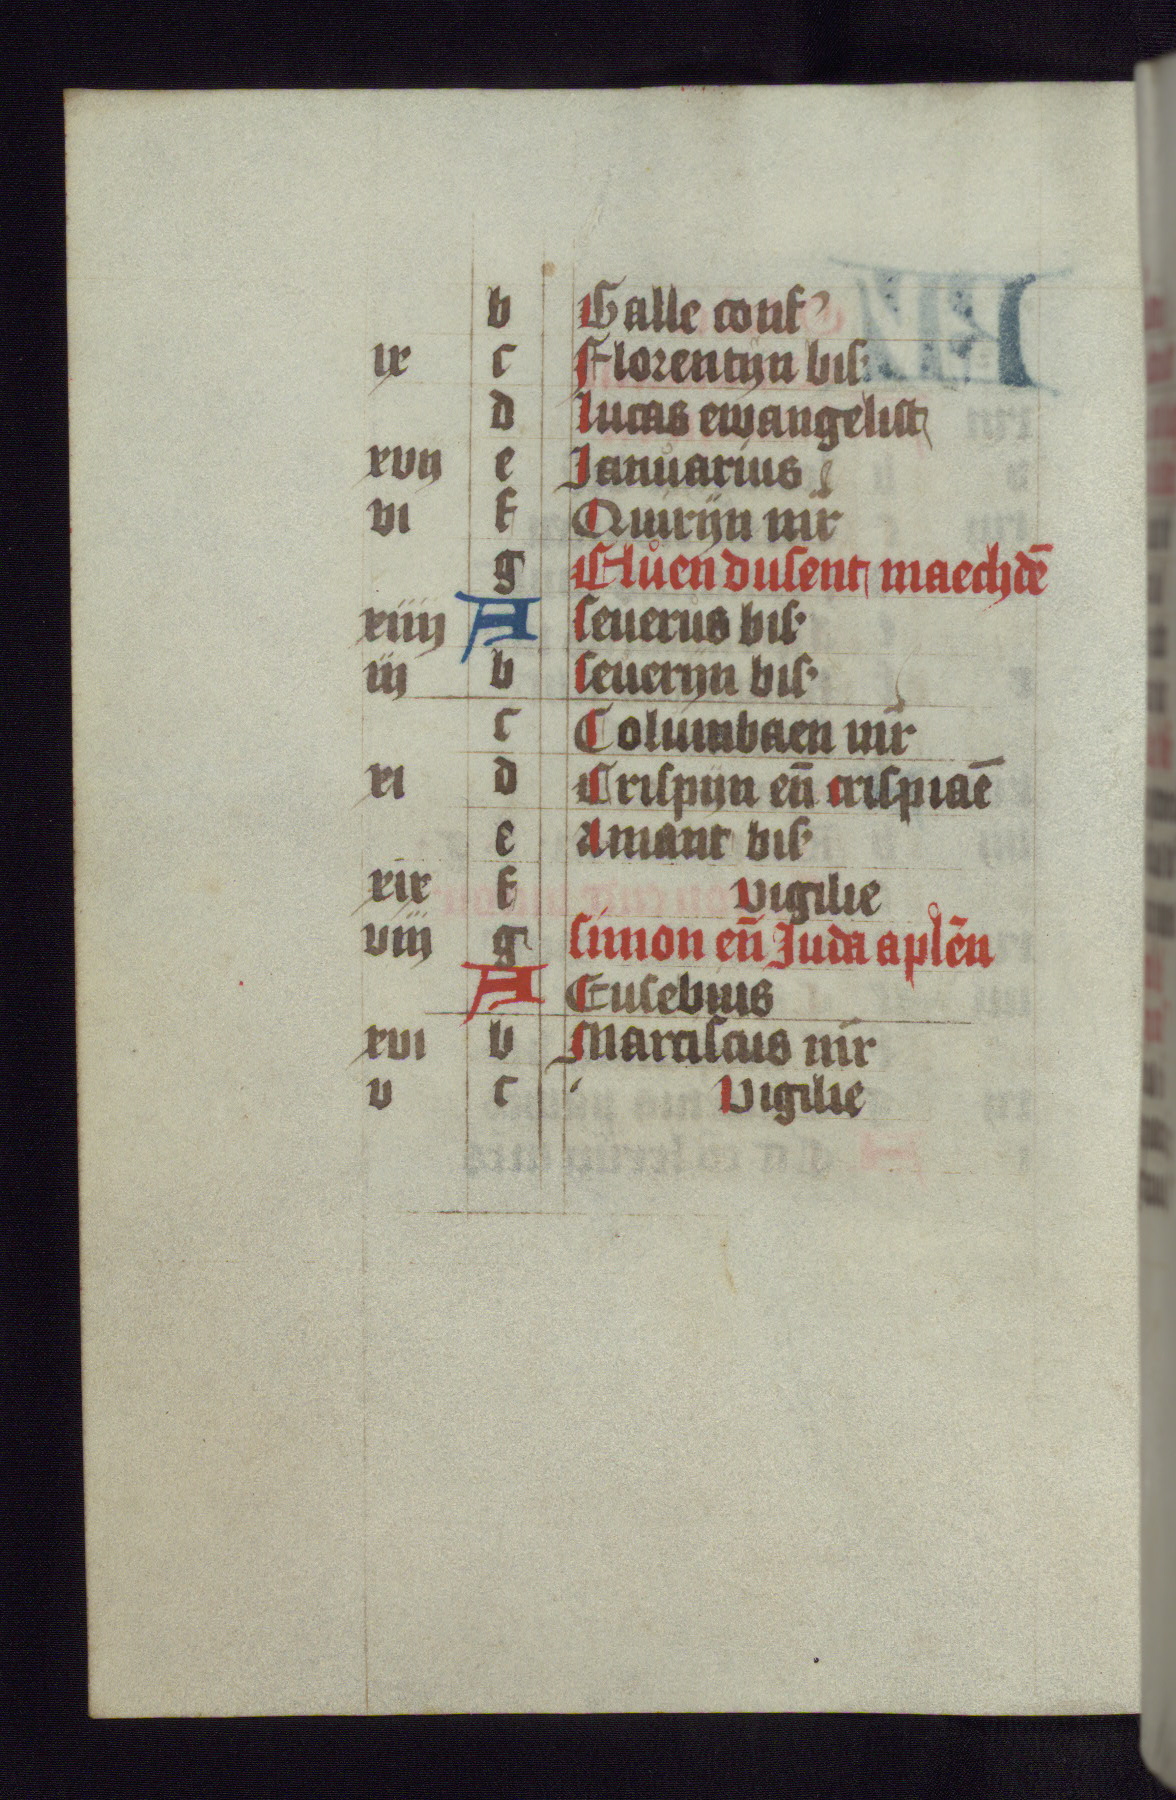 b Galle conf
ix c Florentijn bis
d lucas ewangelist
xvij e Januarius
vi f Quirijn mr̄
g Eluen dusent maechdē
xiiij A seuerus bis
iij b seuerijn bis
c Columbaen mr̄
xi d Crispijn en̄ crispiaē
e Amant bis
xix f vigilie
viij g simon en̄ Juda aplēn
A Eusebius
xvi b Marciscus mr̄
v c Vigilie